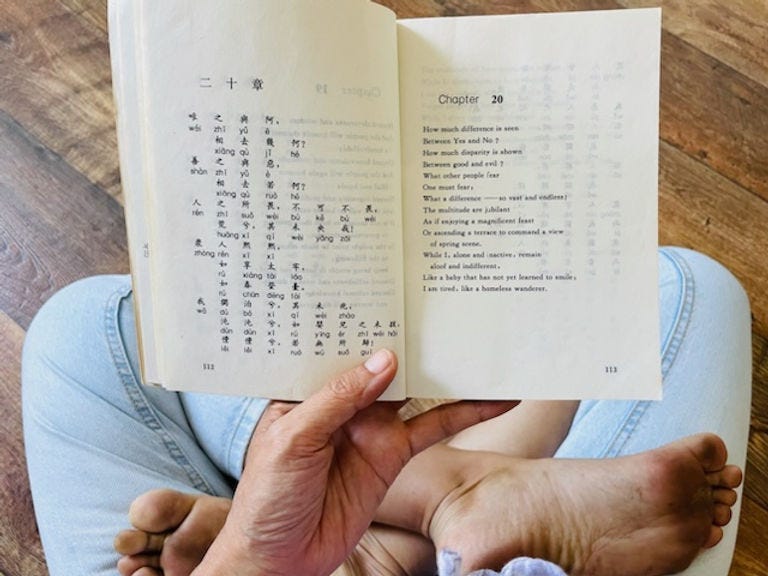 二十章
唯 之 與 阿,
wéi zhī yǔ ē
相 去 幾 何?
xiāng qù jǐ hé
善 之 與 惡,
shàn zhī yǔ è
相 去 若 何?
xiāng qù ruò hé
人 之 所 畏, 不 可 不 畏,
rén zhī suǒ wèi bù kě bú wèi
荒 兮, 其 未 央 哉!
huāng xī qí wèi yāng zāi
眾 人 熙 熙,
zhòng rén xī xī
如 享 太 牢,
rú xiǎng tài láo
如 春 登 臺,
rú chūn dēng tái
我 獨 泊 兮, 其 未 兆,
wǒ dú bó xī qí wèi zhào
沌 沌 兮, 如 嬰 兒 之 未 孩,
dùn dùn xī rú yīng ér zhī wèi hái
儽 儽 兮, 若 無 所 歸!
lěi lěi xī ruò wú suǒ guī
112
Chapter 20
How much difference is seen
Between Yes and No ?
How much disparity is shown
Between good and evil ?
What other people fear
One must fear;
What a difference ——so vast and endless!
The multitude are jubilant
As if enjoying a magnificent feast
Or ascending a terrace to command a view
of spring scene.
While I, alone and inactive, remain
aloof and indifferent,
Like a baby that has not yet learned to smile;
I am tired, like a homeless wanderer.
113